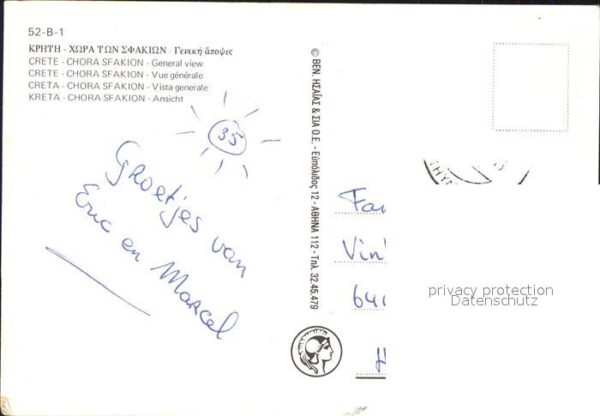 52-B-1
ΚΡΗΤΗ - ΧΩΡΑ ΤΩΝ ΣΦΑΚΙΩΝ - Γενική ἄποψις
CRETE - CHORA SFAKION - General view
CRETE - CHORA SFAKION - Vue générale
CRETA - CHORA SFAKION - Vista generale
KRETA - CHORA SFAKION - Ansicht
35
Groetjes van
Eric en Marcel
© ΒΕΝ. ΗΣΑΪΑΣ & ΣΙΑ Ο.Ε. - Εὐπόλιδος 12 - ΑΘΗΝΑ 112 - Τηλ. 32.45.479
Fa
Vin
64
H
privacy protection
Datenschutz